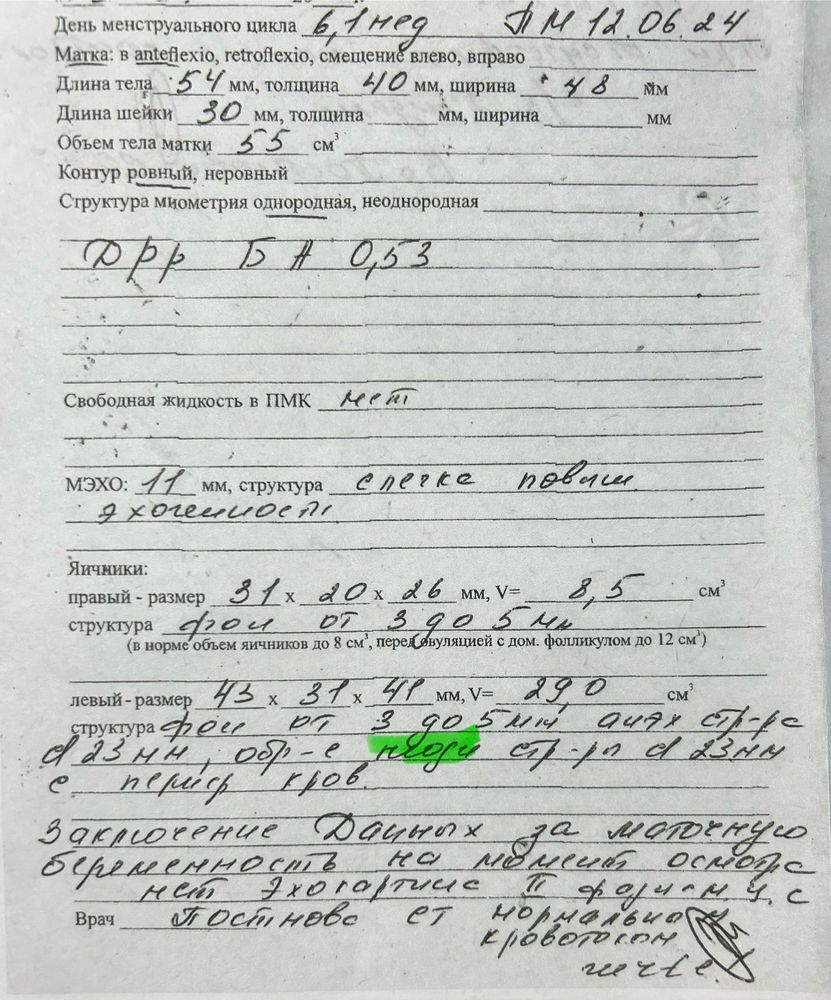 День менструального цикла 6,1 нед ПМ 12.06.24
Матка: в anteflexio, retroflexio, смещение влево, вправо
Длина тела 54 мм, толщина 40 мм, ширина 48 мм
Длина шейки 30 мм, толщина мм, ширина мм
Объем тела матки 55 см³
Контур ровный, неровный
Структура миометрия однородная, неоднородная
DPp БА 0,53
Свободная жидкость в ПМК нет
МЭХО: 11 мм, структура слегка повыш.
эхогенности
Яичники:
правый - размер 31 х 20 х 26 мм, V= 8,5 см³
структура фол от 3 до 5 мм
(в норме объем яичников до 8 см³, перед овуляцией с дом. фолликулом до 12 см³)
левый - размер 43 х 31 х 41 мм, V= 29,0 см³
структура фол от 3 до 5 мм, анэх стр-ра
d 23 мм, обр-е стр-ры d 23 мм
с периф кров.
Заключение Данных за маточную
беременность на момент осмотра
нет Эхокартина II фазы м.ц. с
Врач нормальным
кровотоком